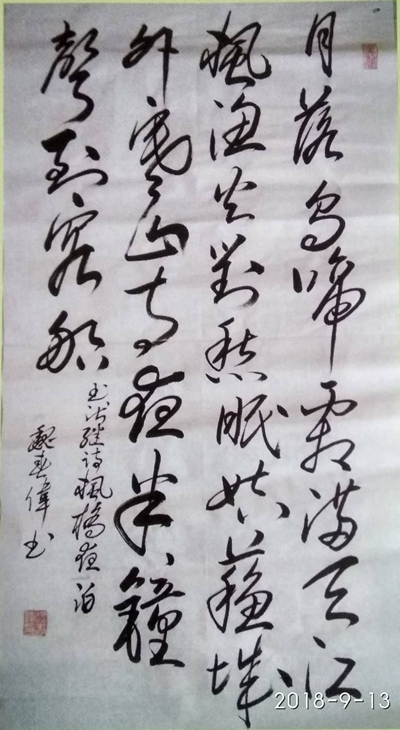 月落烏啼霜滿天江
楓漁火對愁眠姑蘇城
外寒山寺夜半鐘
聲到客船
书张繼诗楓橋夜泊
魏春偉书
2018-9-13